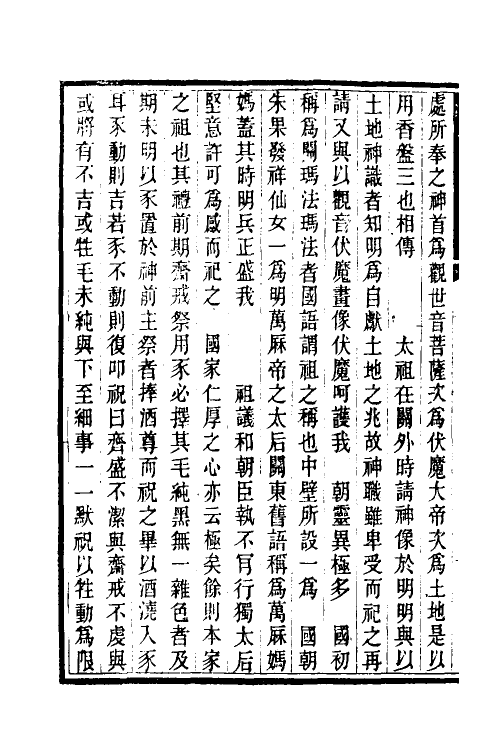 處所奉之神首爲觀世音菩薩次爲伏魔大帝次爲土地是以
用香盤三也相傳　太祖在關外時請神像於明明與以
土地神識者知明爲自獻土地之兆故神職雖卑受而祀之再
請又與以觀音伏魔畫像伏魔呵護我　朝靈異極多　國初
稱爲關瑪法瑪法者國語謂祖之稱也中壁所設一爲　國朝
朱果發祥仙女一爲明萬厤帝之太后關東舊語稱爲萬厤媽
媽蓋其時明兵正盛我　祖議和朝臣執不肎行獨太后
堅意許可爲感而祀之　國家仁厚之心亦云極矣餘則本家
之祖也其禮前期齋戒祭用豕必擇其毛純黑無一雜色者及
期未明以豕置於神前主祭者捧酒尊而祝之畢以酒澆入豕
耳豕動則吉若豕不動則復叩祝曰齊盛不潔與齋戒不虔與
或將有不吉或牲毛未純與下至細事一一默祝以牲動爲限